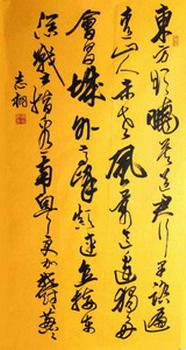 東方欲曉莫道君行早踏遍
青山人未老風景這邊獨好
會昌城外高峰顛連直接東
溟戰士指看南粵更加鬱鬱蔥蔥
志